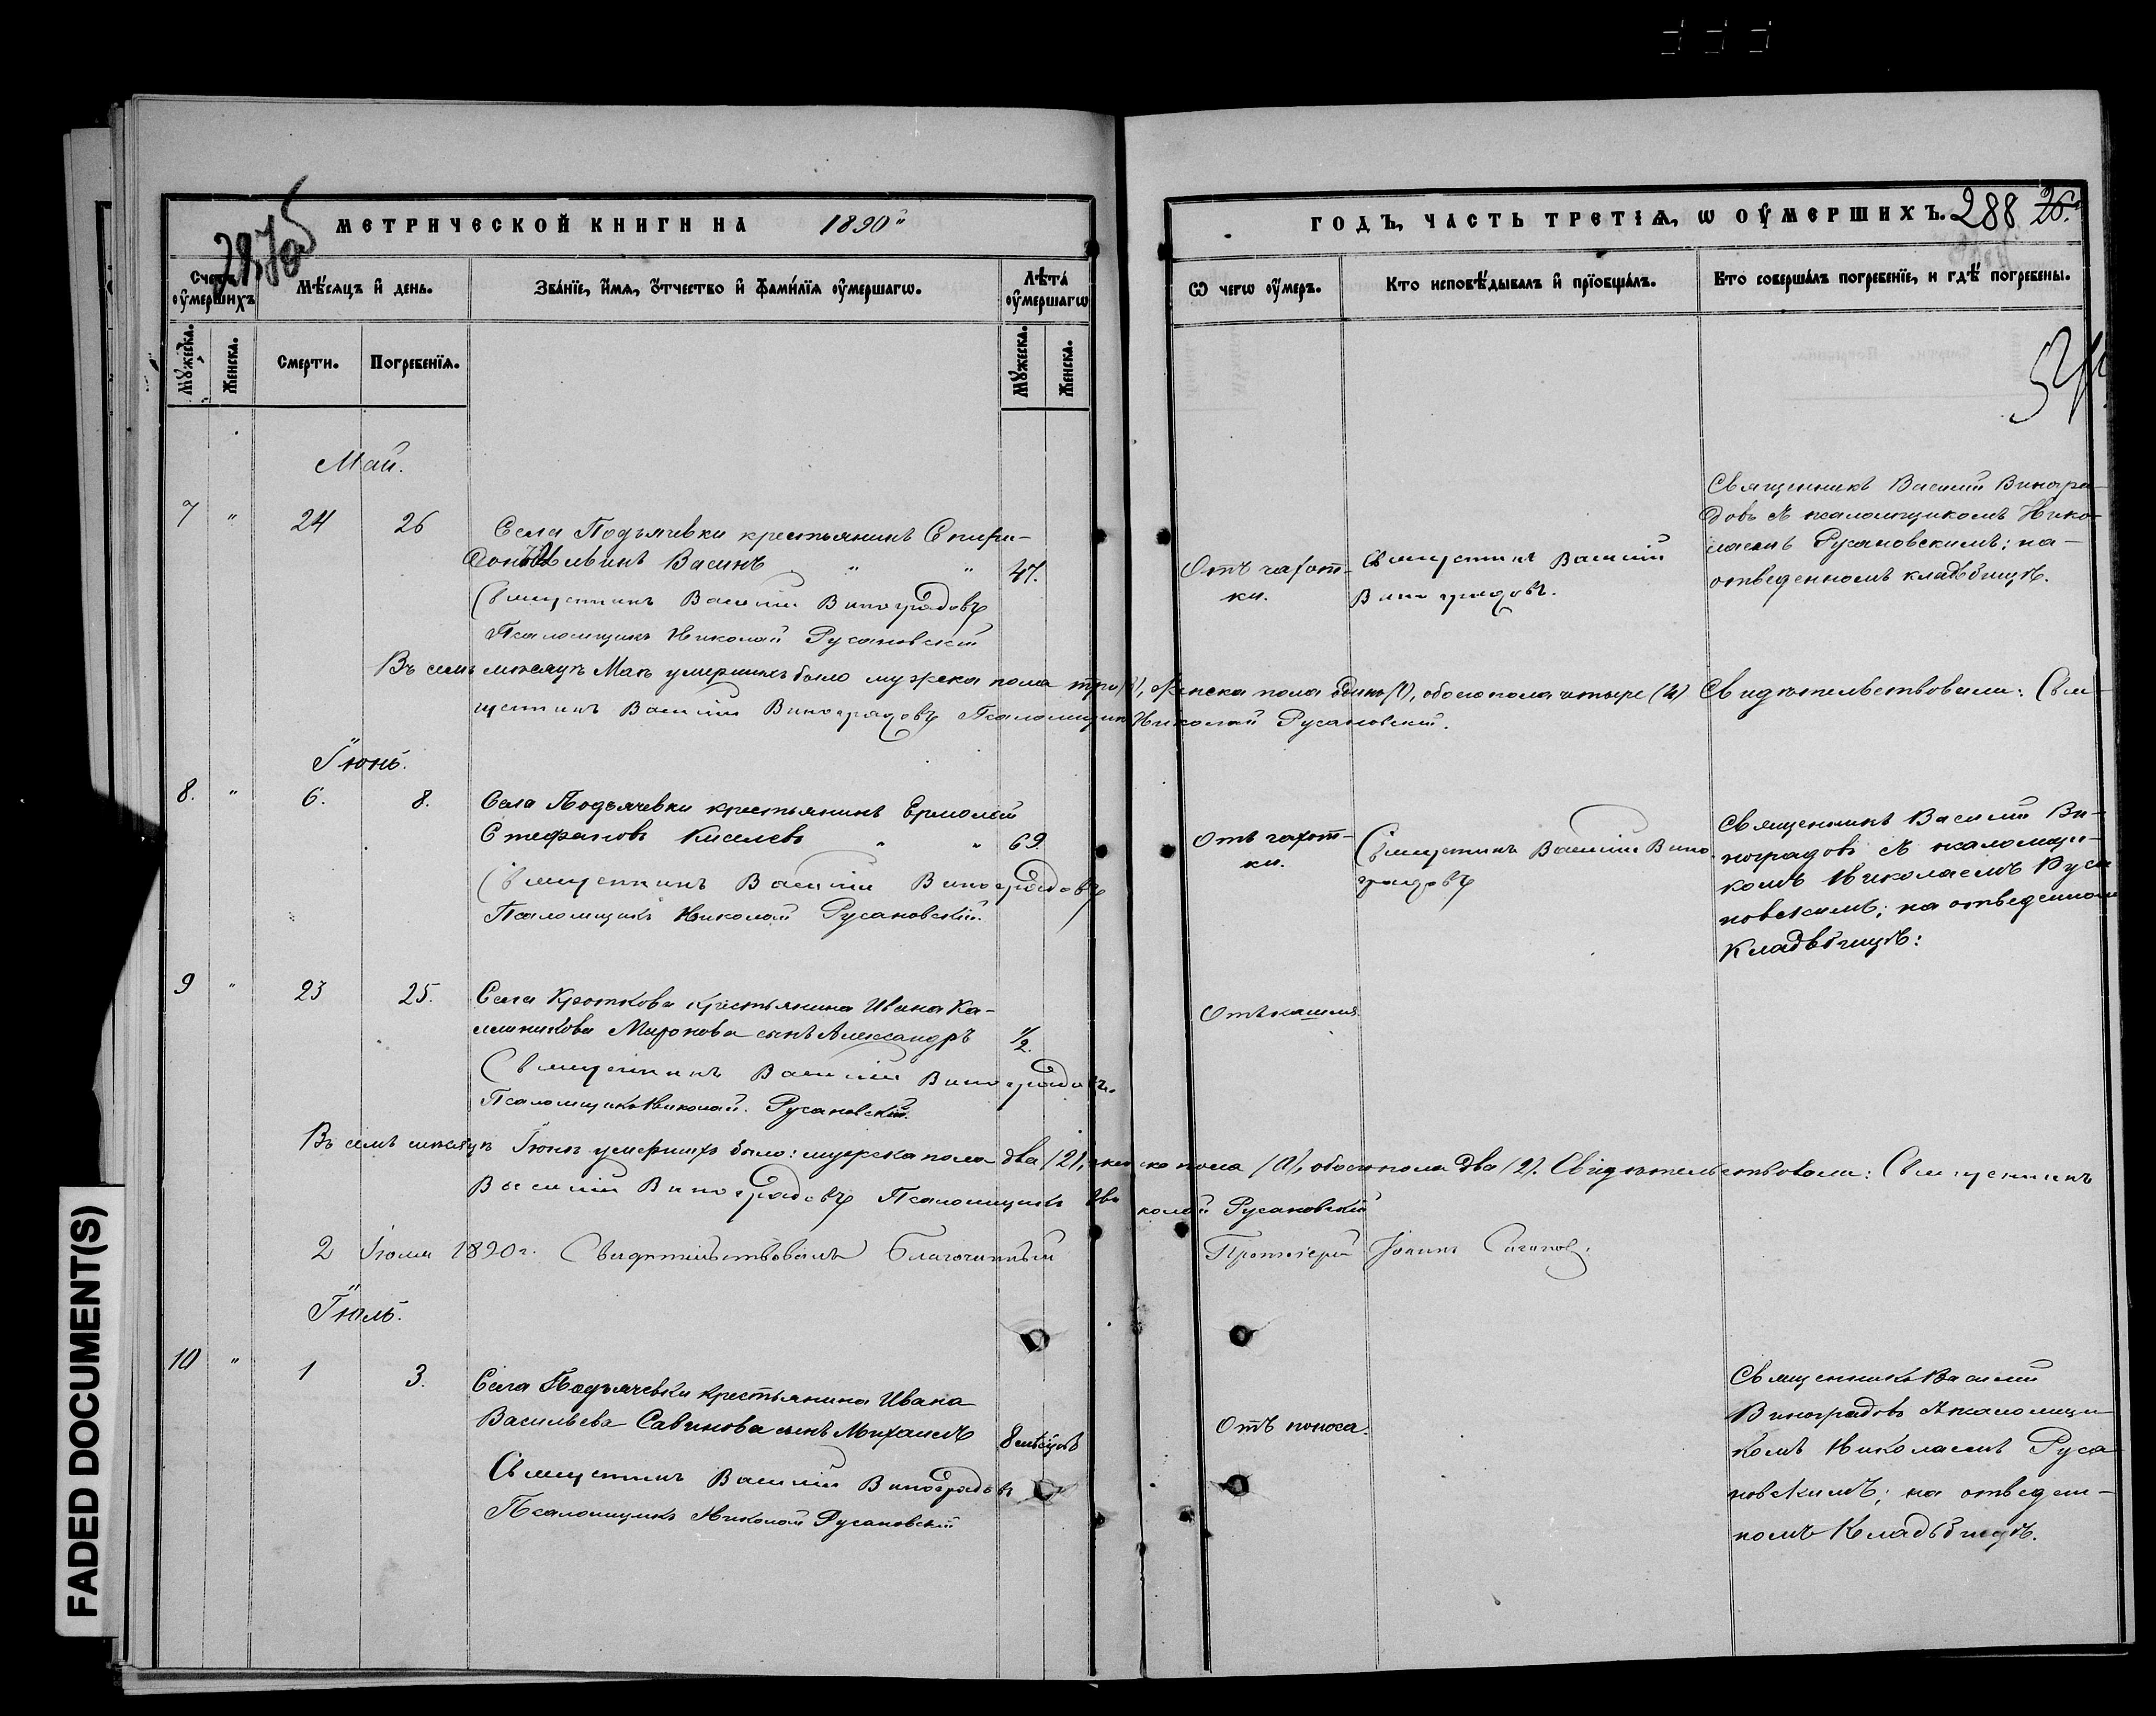 287об
МЕТРИЧЕСКОЙ КНИГИ НА 1890й
ГОДЪ, ЧАСТЬ ТРЕТІѦ, Ѡ ОУМЕРШИХЪ. 288 26.
Счетъ оумершихъ
Мѣсяцъ и день.
Званіе, имя, отчество и фамилія оумершагѡ.
Лѣта оумершагѡ
Ѿ чегѡ оумеръ.
Кто исповѣдывалъ и пріобщалъ.
Кто совершалъ погребеніе, и гдѣ погребены.
Мужеска.
Женска.
Смерти.
Погребенія.
Мужеска.
Женска.
Май.
7 " 24 26
Села Подъячевки крестьянинъ Спири-
донъ Ильинъ Васинъ " " 47.
Священникъ Василій Виноградовъ
Псаломщикъ Николай Русановскій
Отъ чахот-
ки.
Священникъ Василій
Виноградовъ.
Священникъ Василій Виногра-
довъ съ псаломщикомъ Нико-
лаемъ Русановскимъ; на
отведенномъ кладбищѣ.
Въ семъ мѣсяцѣ Маѣ умершихъ было мужеска пола три (3), женска пола одинъ (1), обоего пола четыре (4) Свидѣтельствовали: Свя-
щенникъ Василій Виноградовъ Псаломщикъ Николай Русановскій.
Іюнь.
8. " 6. 8.
Села Подъячевки крестьянинъ Ермолай
Стефановъ Киселевъ " " 69.
Священникъ Василій Виноградовъ
Псаломщикъ Николай Русановскій.
Отъ чахот-
ки.
Священникъ Василій Вино-
градовъ
Священникъ Василій Ви-
ноградовъ съ псаломщи-
комъ Николаемъ Руса
новскимъ; на отведенномъ
кладбищѣ:
9 " 23 25.
Села Кроткова крестьянина Ивана Ка-
Миронова сынъ Александръ 1/2.
Священникъ Василій Виноградовъ.
Псаломщикъ Николай Русановскій.
Отъ кашля
Въ семъ мѣсяцѣ Іюнѣ умершихъ было: мужеска пола два (2), женска пола (0), обоего пола два (2). Свидѣтельствовали: Священникъ
Василій Виноградовъ Псаломщикъ Николай Русановскій
2 Іюля 1890 г. Свидѣтельствовалъ Благочинный Протоіерей Іоаннъ
Іюль.
10 " 1 3.
Села Подъячевки крестьянина Ивана
Васильева Савинова сынъ Михаилъ 8 мѣсяцевъ
Священникъ Василій Виноградовъ
Псаломщикъ Николай Русановскій
Отъ поноса.
Священникъ Василій
Виноградовъ съ псаломщи
комъ Николаемъ Руса
новскимъ; на отведен-
номъ кладбищѣ.
FADED DOCUMENT(S)